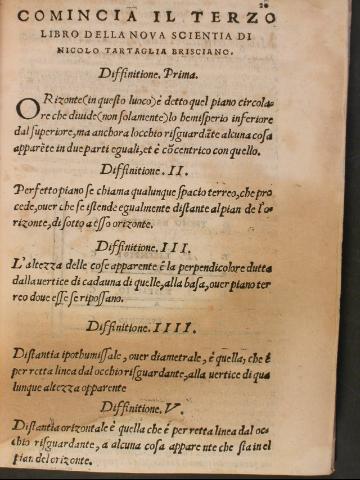 20
COMINCIA IL TERZO
LIBRO DELLA NOVA SCIENTIA DI
NICOLO TARTAGLIA BRISCIANO.
Diffinitione. Prima.
ORizonte (in questo luoco) è detto quel piano circola-
re che diuide (non solamente) lo hemisperio inferiore
dal superiore, ma anchora locchio risguardãte alcuna cosa
apparẽte in due parti eguali, et è cõcentrico con quello.
Diffinitione. II.
Perfetto piano se chiama qualunque spacio terreo, che pro
cede, ouer che se istende egualmente distante al pian de l'o-
rizonte, di sotto a esso orizonte.
Diffinitione. III.
L'altezza delle cose apparente è la perpendicolore dutta
dalla vertice di cadauna di quelle, alla basa, ouer piano ter
reo doue esse se ripossano.
Diffinitione. IIII.
Distantia ipothumissale, ouer diametrale, è quella, che è
per retta linea dal occhio risguardante, alla vertice di qua
lunque altezza apparente
Diffinitione. V.
Distantia orizontale è quella che è per retta linea dal oc-
chio risguardante, a alcuna cosa apparente che sia in el
pian del orizonte.